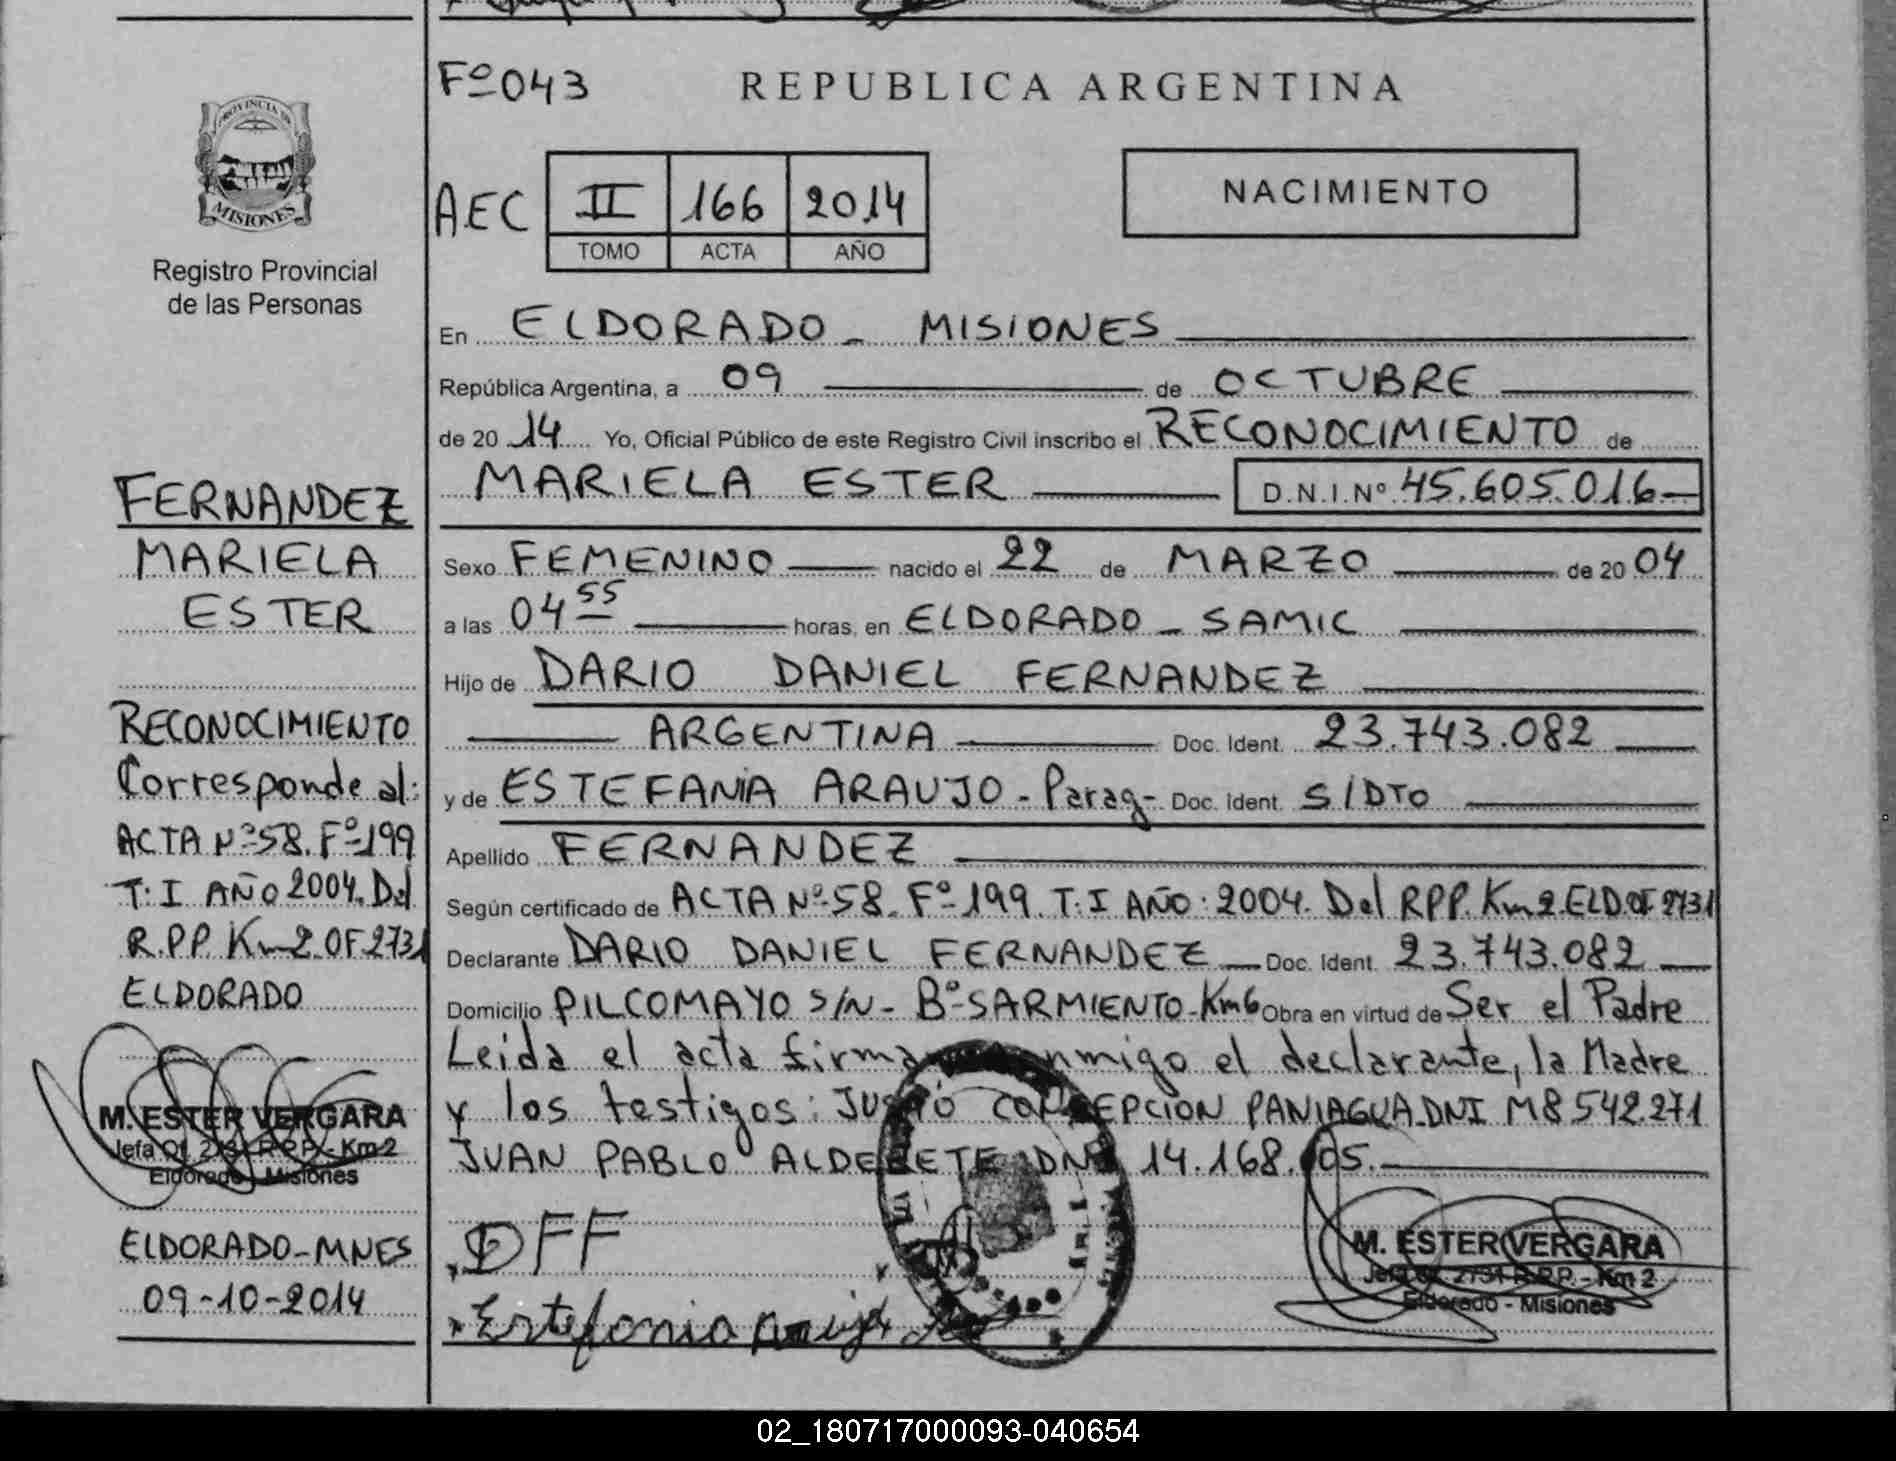 Fº 043
REPUBLICA ARGENTINA
PROVINCIA DE
MISIONES
Registro Provincial
de las Personas
AEC
II 166 2014
TOMO ACTA AÑO
NACIMIENTO
En ELDORADO - MISIONES
República Argentina, a 09 de OCTUBRE
de 20 14 Yo, Oficial Público de este Registro Civil inscribo el RECONOCIMIENTO de
MARIELA ESTER D.N.I.Nº 45.605.016
Sexo FEMENINO nacido el 22 de MARZO de 20 04
a las 04 55 horas, en ELDORADO - SAMIC
Hijo de DARIO DANIEL FERNANDEZ
ARGENTINA Doc. Ident. 23.743.082
y de ESTEFANIA ARAUJO - Parag- Doc. Ident. S/DTO
Apellido FERNANDEZ
Según certificado de ACTA Nº 58. Fº 199. T: I AÑO: 2004. Del RPP. Km 2. ELD. OF. 2731
Declarante DARIO DANIEL FERNANDEZ Doc. Ident. 23.743.082
Domicilio PILCOMAYO S/N - Bº SARMIENTO - Km6 Obra en virtud de Ser el Padre
Leida el acta conmigo el declarante, la Madre
y los testigos: JUSTO CONCEPCION PANIAGUA. DNI M8 542.271
JUAN PABLO ALDERETE DNI 14.168.
DFF
Estefania
M. ESTER VERGARA
Jefa Of. 2731 R.P.P. - Km 2
Eldorado - Misiones
FERNANDEZ
MARIELA
ESTER
RECONOCIMIENTO
Corresponde al:
ACTA Nº 58. Fº 199
T: I AÑO 2004. Del
R.P.P. Km 2. OF. 2731
ELDORADO
M. ESTER VERGARA
Jefa Of. 2731 R.P.P. - Km 2
Eldorado - Misiones
ELDORADO - MNES
09-10-2014
02_180717000093-040654